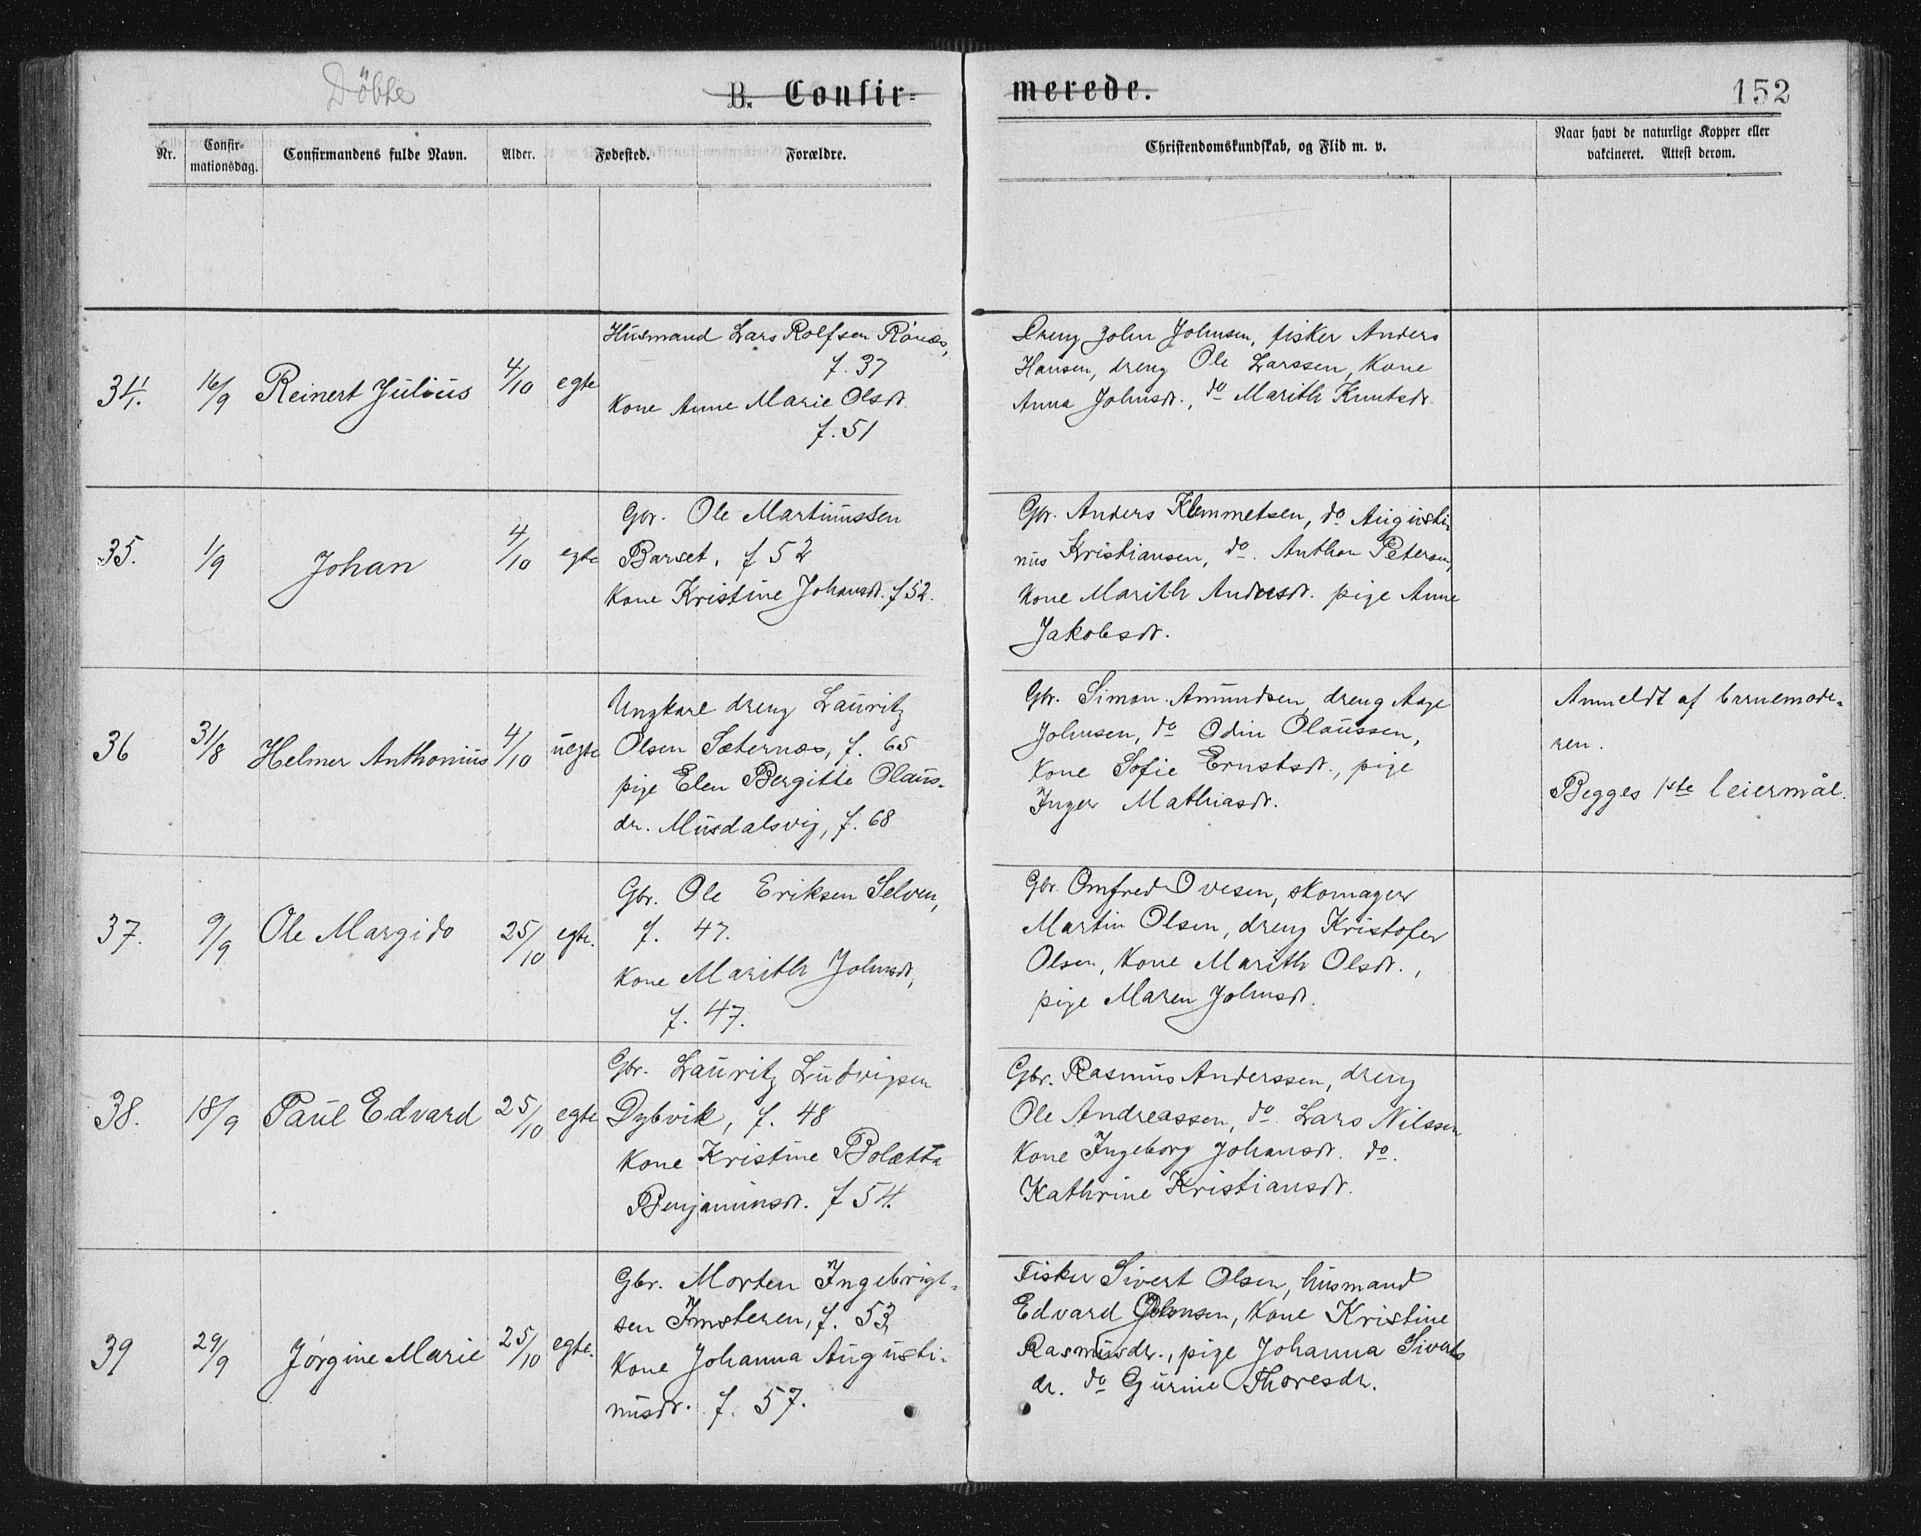 Döbte
B. Confir-
merede.
152
Nr.
Confir-
mationsdag.
Confirmandens fulde Navn.
Alder.
Fødested.
Forældre.
Christendomskundskab, og Flid m. v.
Naar havt de naturlige Kopper eller
vakcineret. Attest derom.
34.
16/9
Reinert Julius
4/10
egte
Husmand Lars Rolfsen Rönæs,
f. 37
Kone Anne Marie Olsdt.
f. 51
Dreng John Johnsen, fisker Anders
Hansen, dreng Ole Larssen, Kone
Anna Johnsdt., do Marith Knutsdt.
35.
1/9
Johan
4/10
egte
Gbr. Ole Martinussen
Barset, f 52
Kone Kristine Johansdt. f 52.
Gbr. Anders Klemmetsen, do Augusti-
nus Kristiansen, do. Anthon Petersen,
Kone Marith Andersdt. pige Anne
Jakobsdt.
36
31/8
Helmer Anthonius
4/10
uegte
Ungkarl dreng Lauritz
Olsen Sæternæs, f. 65
pige Elen Bergitte Olaus-
dr. Musdalsvig, f. 68
Gbr. Simon Amundsen, dreng Aage
Johnsen, do Odin Olaussen,
Kone Sofie Ernstsdt., pige
Inger Mathiasdt.
Anmeldt af barnemode-
ren.
Begges 1ste leiermål.
37.
9/9
Ole Margido
25/10
egte.
Gbr. Ole Eriksen Selven,
f. 47.
Kone Marith Johnsdt,
f. 47.
Gbr. Omfred Ovesen, skomager
Martin Olsen, dreng Kristofer
Olsen, Kone Marith Olsdt.,
pige Maren Johnsdt.
38.
18/9
Paul Edvard
25/10
egte
Gbr. Lauritz Ludvigsen
Dybvik, f. 48
Kone Kristine Bolætta
Benjaminsdt. f 54.
Gbr. Rasmus Anderssen, dreng
Ole Andreassen, do. Lars Nilssen
Kone Ingeborg Johansdt. do.
Kathrine Kristiansdt.
39
29/9
Jørgine Marie
25/10
egte.
Gbr. Morten Ingebrigt-
sen Imsteren, f. 53,
Kone Johanna Augusti-
nusdt. f. 57.
Fisker Sivert Olsen, husmand
Edvard Johnsen, Kone Kristine
Rasmusdr., pige Johanna Siverts
dr. do Gurine Thoresdr.